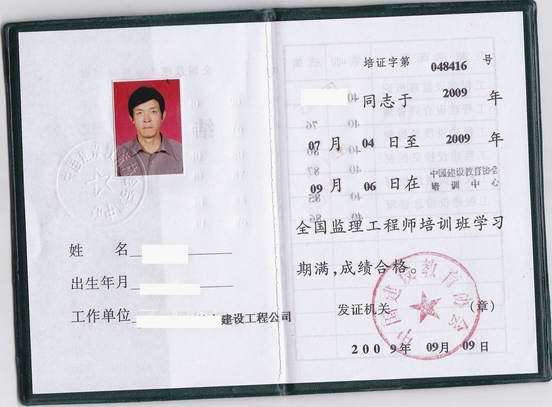 姓 名
出生年月
工作单位 建设工程公司
培证字第 048416 号
同志于 2009 年
07 月 04 日至 2009 年
09 月 06 日在 中国建设教育协会
培训中心
全国监理工程师培训班学习
期满,成绩合格。
发证机关 (章)
2009年 09月 09日
中国建设教育协会